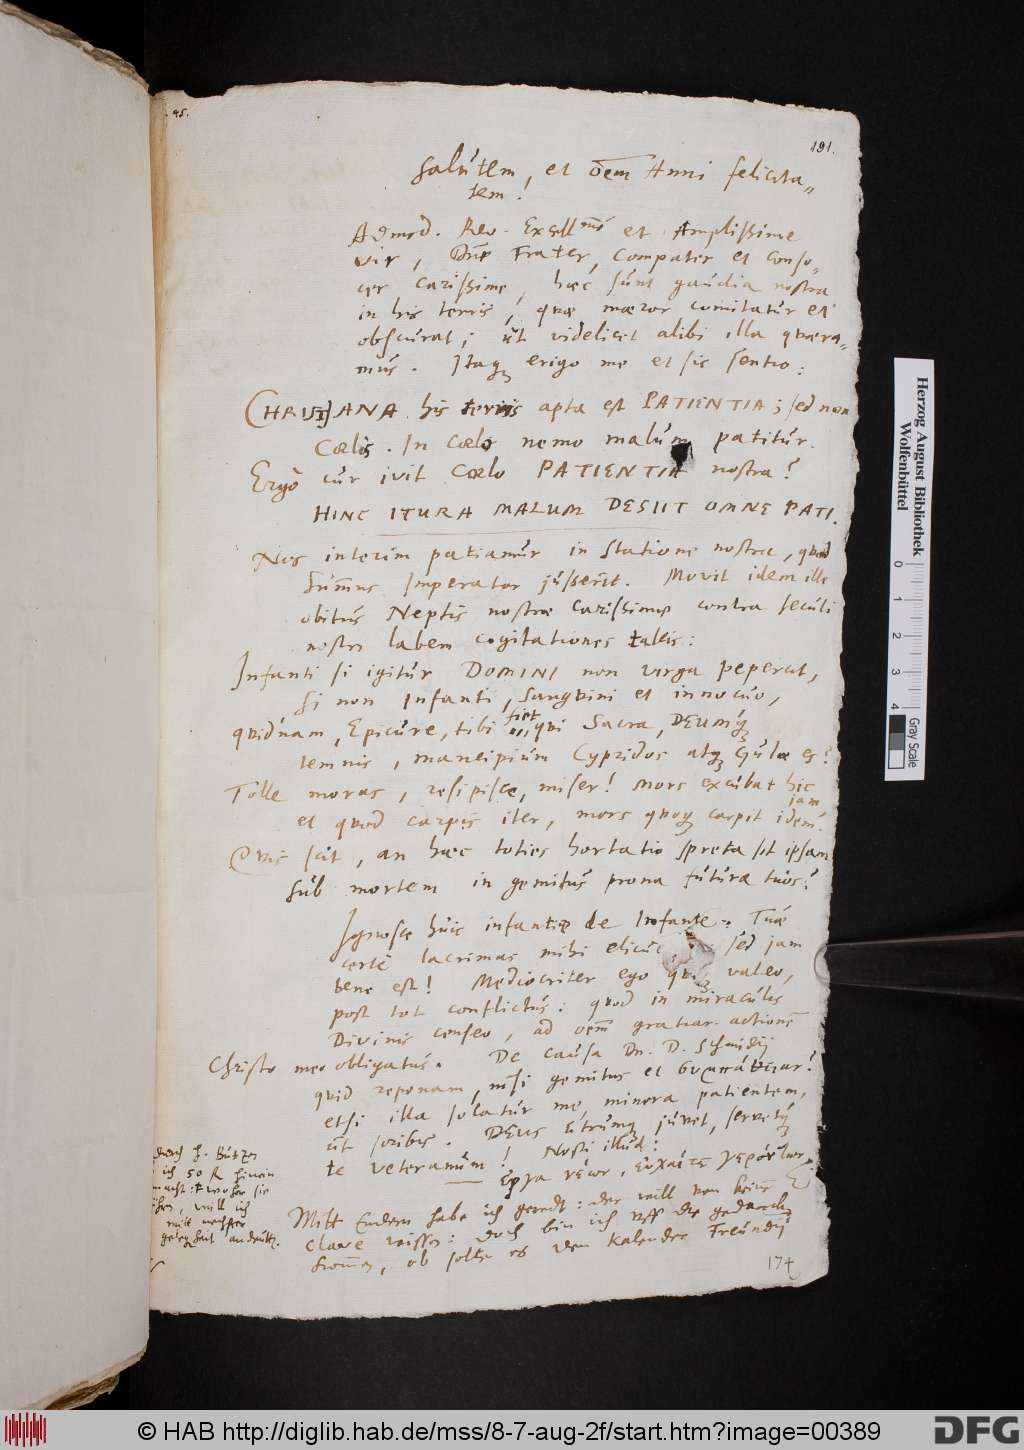 45.
191.
Salútem, et oem Anni felicita„
tem!
Admod. Rev. Excellmé et Amplissime
vir, Dne Frater, Compater et Conso„
cer Carissime, hæc súnt gaúdia nostra
in his terris, quæ mæror comitatúr et
obscúrat; út videlicet alibi illa quæra„
mús. Itaq erigo me et sic sentio:
CHRISTIANA his terris apta est PATIENTIA; sed non
Cœlis. In Cœlo nemo malúm patitúr.
Ergò cúr ivit Cœlo PATIENTIA nostra?
HINC ITURA MALUM DESIIT OMNE PATI.
Nos interim patiamúr in statione nostra, quod
Súmus Imperator jússerit. Movit idem ille
obitús Neptis nostræ Carissimæ contra seculi
nostri labem cogitationes tales:
Infanti si igitúr DOMINI non virga pepercit,
Si non Infanti, sanguini et innocúo,
quidnam, Epicúre, tibi fiet, qui Sacra, DEUMq
temnis, mancipiúm Cypridos atq Gúlæ es?
Tolle moras, resipisce, miser! Mors excúbat hic jam
et quod carpis iter, mors quoq carpit idem.
Quis scit, an hæc toties hortatio spreta sit ipsam
súb mortem in gemitús prona fútúra túos?
Ignosce húic infantiæ de Infante. Túæ
certè lacrimas mihi elicúe sed jam
bene est! Mediocriter ego quoq valeo,
post tot conflictús: quod in miracúlis
Divinis censeo, ad oem gratiar. actionē
Christo meo obligatús. De Caúsa Dn. D. Schmidij
quid reponam, nisi gemitus et
etsi illa solatúr me, minora patientem,
út scribis. DEUS útrúmq júvet, servetq
te veteranúm! Nosti illúd:
Ἔργα νέων, εὐχαί τε γερόντων
Mitt Endern habe ich geredt: der will von keiner
Clave wissen: doch bin ich uff die gedancken
kommen, ob solte es den Kalender Freúndij
durch H. Bützer
ich 50 R hinein
macht: woher sie
will ich
mitt nechster
gelegenheit
174
Herzog August Bibliothek
Wolfenbüttel
0 1 2 3 4
Gray Scale
© HAB http://diglib.hab.de/mss/8-7-aug-2f/start.htm?image=00389
DFG